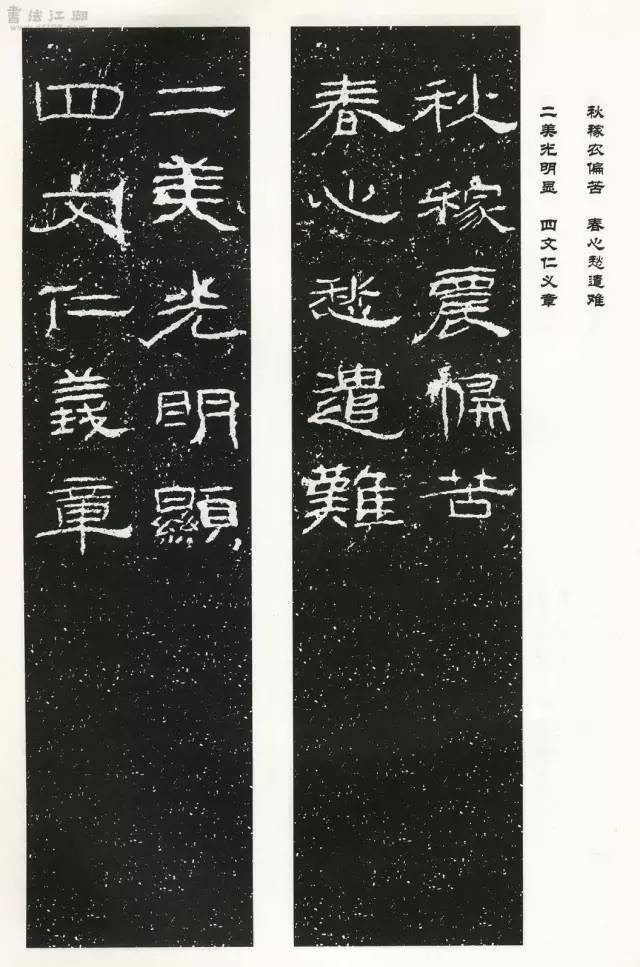 秋稼农偏苦 春心愁遣难
二美光明显 四文仁义章
秋稼農偏苦
春心愁遣難
二美光明顯
四文仁義章
書法江湖